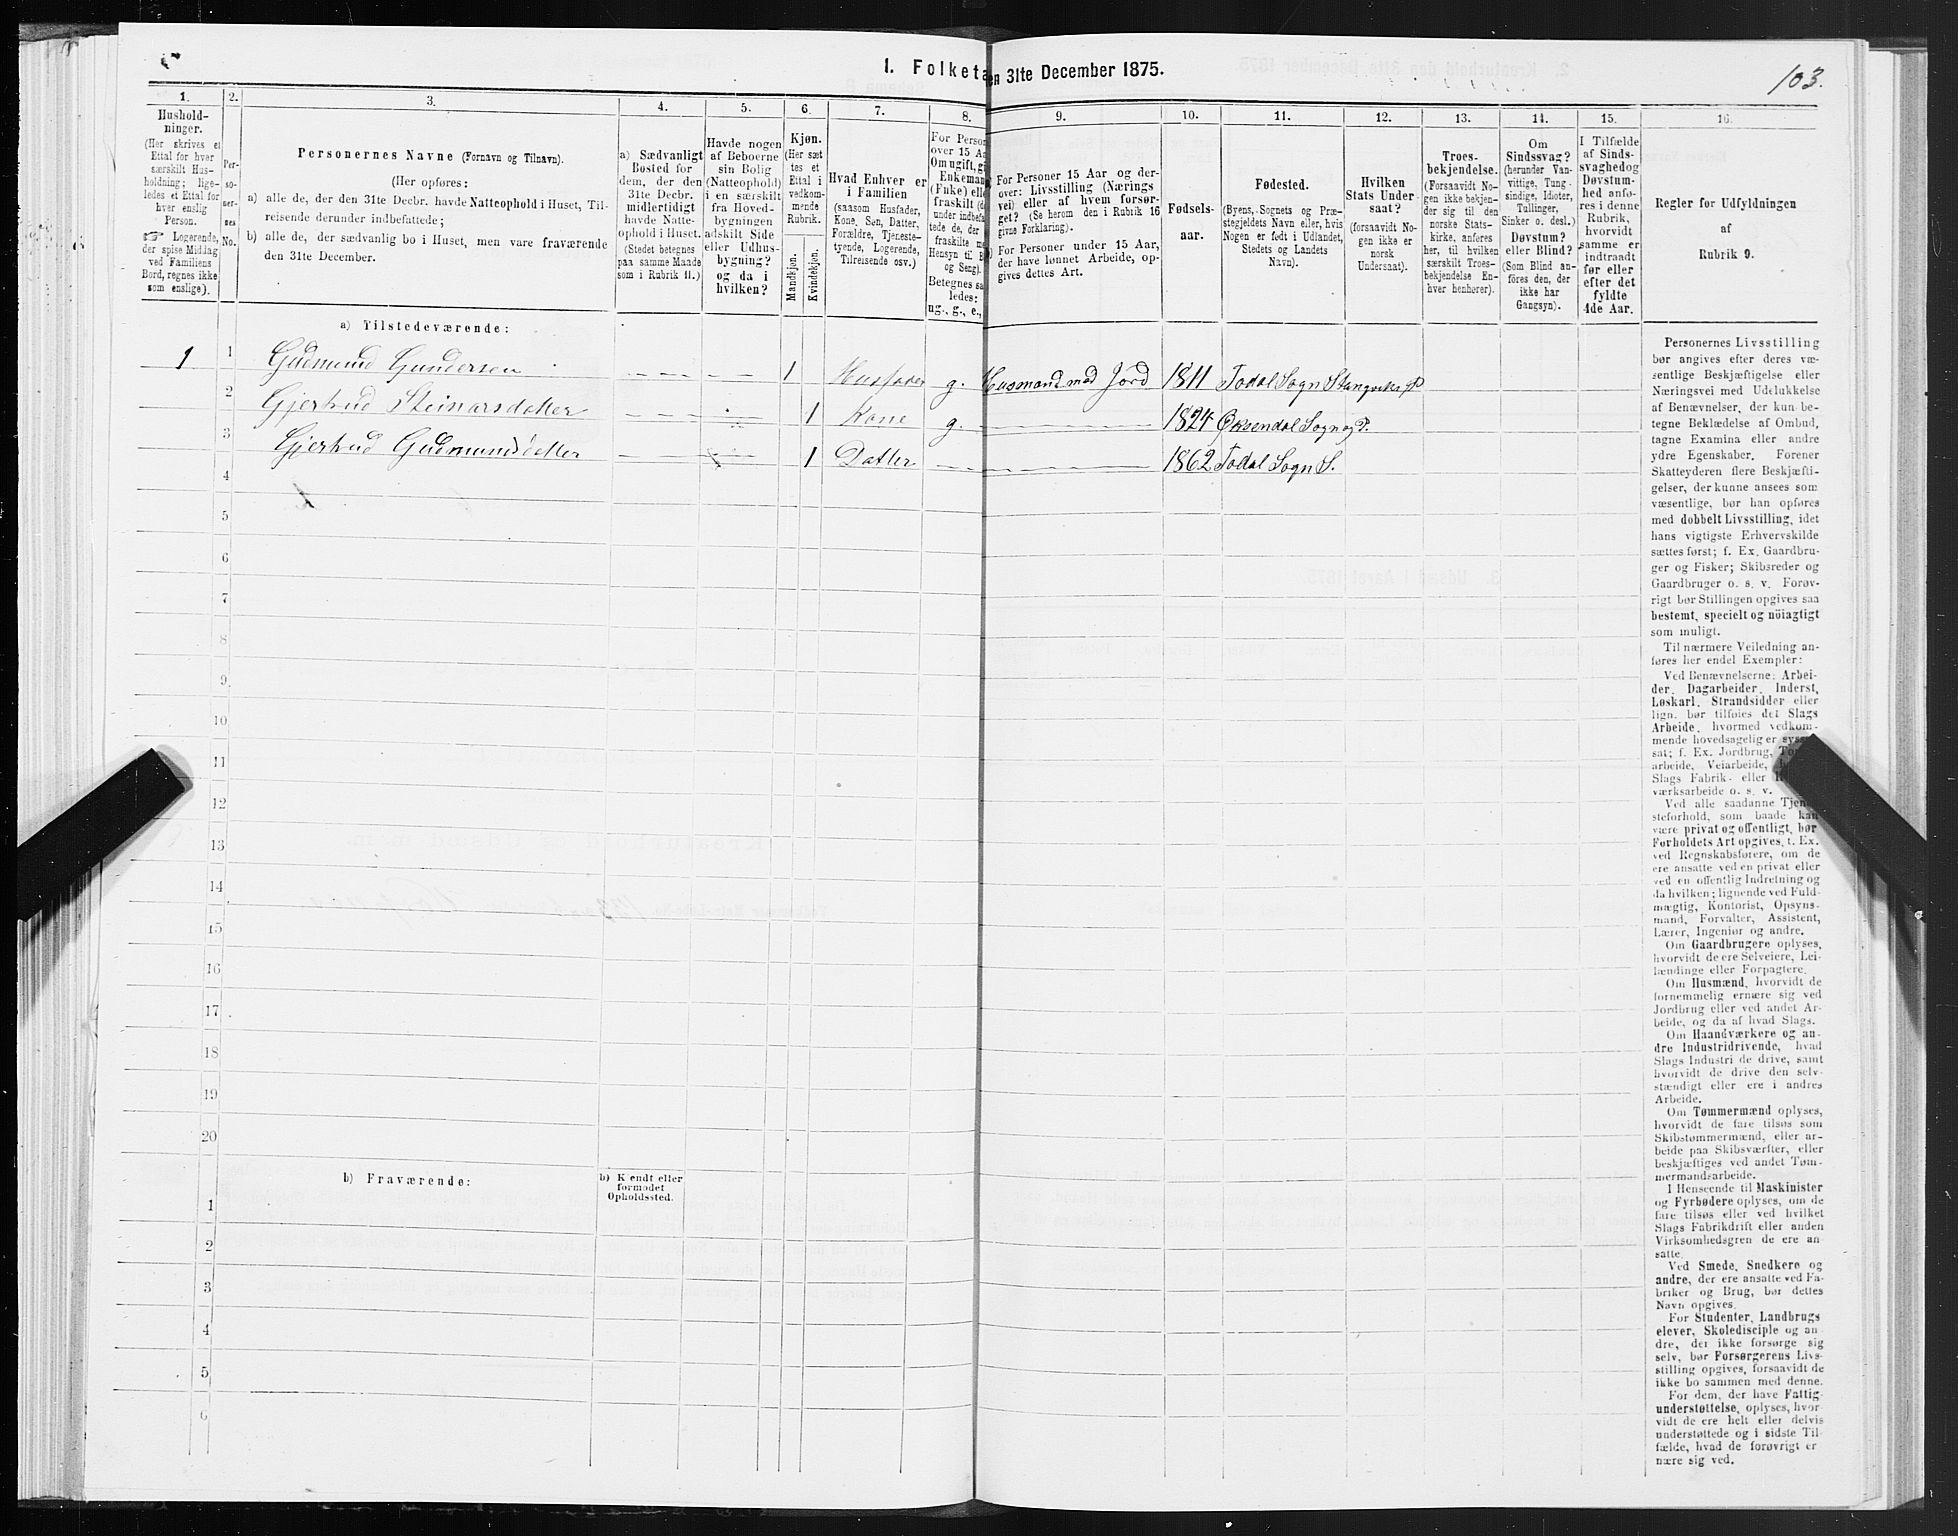 1. Folketa
en 31te December 1875.
103.
1.
2.
3.
4.
5.
6.
7.
8.
9.
10.
11.
12.
13.
14.
15.
16.
Hushold-
ninger.
(Her skrives et
Ettal for hver
særskilt Hus-
holdning; lige-
ledes et Ettal for
hver enslig
Person.
☞ Logerende,
der spise Middag
ved Familiens
Bord, regnes ikke
som enslige).
Per-
so-
ner-
nes
No.
Personernes Navne (Fornavn og Tilnavn).
(Her opføres:
a) alle de, der den 31te Decbr. havde Natteophold i Huset, Til-
reisende derunder indbefattede;
b) alle de, der sædvanlig bo i Huset, men vare fraværende
den 31te December.
a) Sædvanligt
Bosted for
dem, der den
31te Decbr.
midlertidigt
havde Natte-
ophold i Huset.
(Stedet betegnes
paa samme Maade
som i Rubrik 11.)
Havde nogen
af Beboerne
sin Bolig
(Natteophold)
i en særskilt
fra Hoved-
bygningen
adskilt Side
eller Udhus-
bygning?
og da i
hvilken?
Kjøn.
(Her sæt
tes et
Ettal i
vedkom-
mende
Rubrik.
Mandkjøn.
Kvindekjøn.
Hvad Enhver er
i Familien
(saasom Husfader,
Kone, Søn, Datter,
Forældre, Tjeneste-
tyende, Logerende,
Tilreisende osv.)
For Person
over 15 Aa
Om ugift, gi
Enkeman
(Enke) elle
fraskilt (d
under indbefa
tede de, der
fraskilte m
Hensyn til B
og Seng).
Betegnes saa
ledes:
ug., g., e.,
For Personer 15 Aar og der-
over: Livsstilling (Nærings
vei) eller af hvem forsør-
get? (Se herom den i Rubrik 16
givne Forklaring).
For Personer under 15 Aar,
der have lønnet Arbeide, op-
gives dettes Art.
Fødsels-
aar.
Fødested.
(Byens, Sognets og Præ-
stegjeldets Navn eller, hvis
Nogen er født i Udlandet,
Stedets og Landets
Navn).
Hvilken
Stats Under-
saat?
(forsaavidt No-
gen ikke er
norsk
Undersaat).
Troes-
bekjendelse.
(Forsaavidt No-
gen ikke bekjen-
der sig til den
norske Stats-
kirke, anføres
her, til hvilken
særskilt Troes-
bekjendelse En-
hver henhører).
Om
Sindssvag?
(herunder Van-
vittige, Tung-
sindige, Idioter,
Tullinger,
Sinker o. desl.)
Døvstum?
eller Blind?
(Som Blind an-
føres den, der
ikke har
Gangsyn).
I Tilfælde
af Sinds-
svaghed og
Døvstum-
hed anfø-
res i denne
Rubrik,
hvorvidt
samme er
indtraadt
før eller
efter det
fyldte
4de Aar.
Regler for Udfyldningen
af
Rubrik 9.
a) Tilstedeværende:
1
1 Gudmund Gundersen 1 Husfader g. Husmand med Jord 1811 Todal Sogn Stangviks P
2 Gjertrud Steinarsdatter 1 Kone g. 1824 Øksendal Sogn og P.
3 Gjertrud Gudmundsdatter 1 Datter 1862 Todal Sogn S.
4
5
6
7
8
9
10
11
12
13
14
15
16
17
18
19
20
b) Fraværende:
b) Kjendt eller
formodet
Opholdssted.
1
2
3
4
5
6
Personernes Livsstilling
bør angives efter deres væ-
sentlige Beskjæftigelse eller
Næringsvei med Udelukkelse
af Benævnelser, der kun be-
tegne Beklædelse af Ombud,
tagne Examina eller andre
ydre Egenskaber. Forener
Skatteyderen flere Beskjæfti-
gelser, der kunne ansees som
væsentlige, bør han opføres
med dobbelt Livsstilling, idet
hans vigtigste Erhvervskilde
sættes først; f. Ex. Gaardbru-
ger og Fisker; Skibsreder og
Gaardbruger o. s. v. Forøv-
rigt bør Stillingen opgives saa
bestemt, specielt og nöiagtigt
som muligt.
Til nærmere Veiledning an-
føres her endel Exempler:
Ved Benævnelserne: Arbei-
der, Dagarbeider, Inderst,
Løskarl, Strandsidder eller
lign. bør tilføies det Slags
Arbeide, hvormed vedkom-
mende hovedsagelig er syssel
sat; f. Ex. Jordbrug,
arbeide, Veiarbeide,
Slags Fabrik- eller
værksarbeide o. s. v.
Ved alle saadanne Tjene
steforhold, som baade kan
være privat og offentligt, bør
Forholdets Art opgives, f. Ex.
ved Regnskabsførere, om de
ere ansatte ved en privat eller
ved en offentlig Indretning og
da hvilken; lignende ved Fuld-
mægtig, Kontorist, Opsyns-
mand, Forvalter, Assistent,
Lærer, Ingeniør og andre.
Om Gaardbrugere oplyses,
hvorvidt de ere Selveiere, Lei-
lændinge eller Forpagtere.
Om Husmænd, hvorvidt de
fornemmelig ernære sig ved
Jordbrug eller ved andet Ar-
beide, og da af hvad Slags.
Om Haandværkere og an-
dre Industridrivende, hvad
Slags Industri de drive, samt
hvorvidt de drive den selv-
stændigt eller ere i andres
Arbeide.
Om Tømmermænd oplyses,
hvorvidt de fare tilsøs som
Skibstømmermænd, eller ar-
beide paa Skibsværfter, eller
beskjæftiges ved andet Tøm-
mermandsarbeide.
I Henseende til Maskinister
og Fyrbødere oplyses, om de
fare tilsøs eller ved hvilket
Slags Fabrikdrift eller anden
Virksomhedsgren de ere an-
satte.
Ved Smede, Snedkere og
andre, der ere ansatte ved Fa-
briker og Brug, bør dettes
Navn opgives.
For Studenter, Landbrugs
elever, Skoledisciple og an-
dre, der ikke forsørge sig
selv, bør Forsørgerens Livs-
stilling opgives, forsaavidt de
ikke bo sammen med denne.
For dem, der have Fattig-
understøttelse, oplyses, hvor-
vidt de ere helt eller delvis
understøttede og i sidste Til-
fælde, hvad de forøvrigt er
nære sig ved.